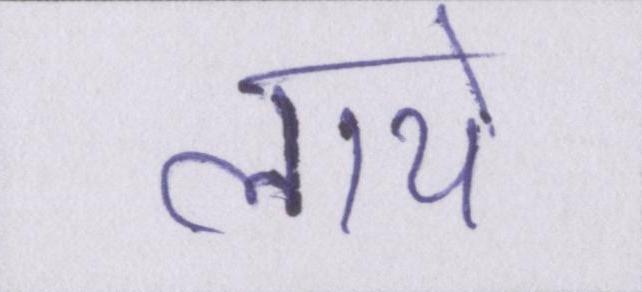 लाये